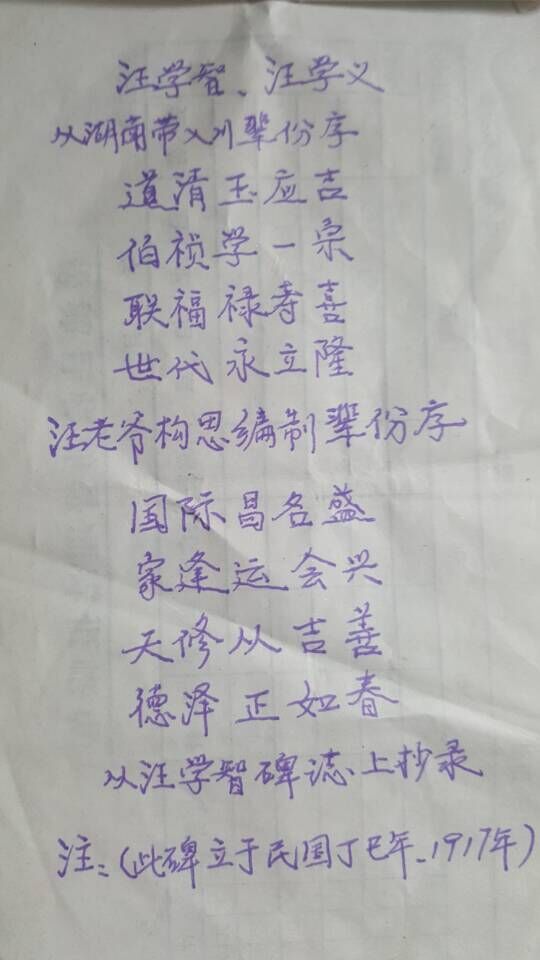 汪学智、汪学义
从湖南带入川辈份序
道清玉应吉
伯祯学一宗
联福禄寿喜
世代永立隆
汪老爷构思编制辈份序
国际昌名盛
家逢运会兴
天修从吉善
德泽正如春
从汪学智碑誌上抄录
注:(此碑立于民国丁巳年_1917年)